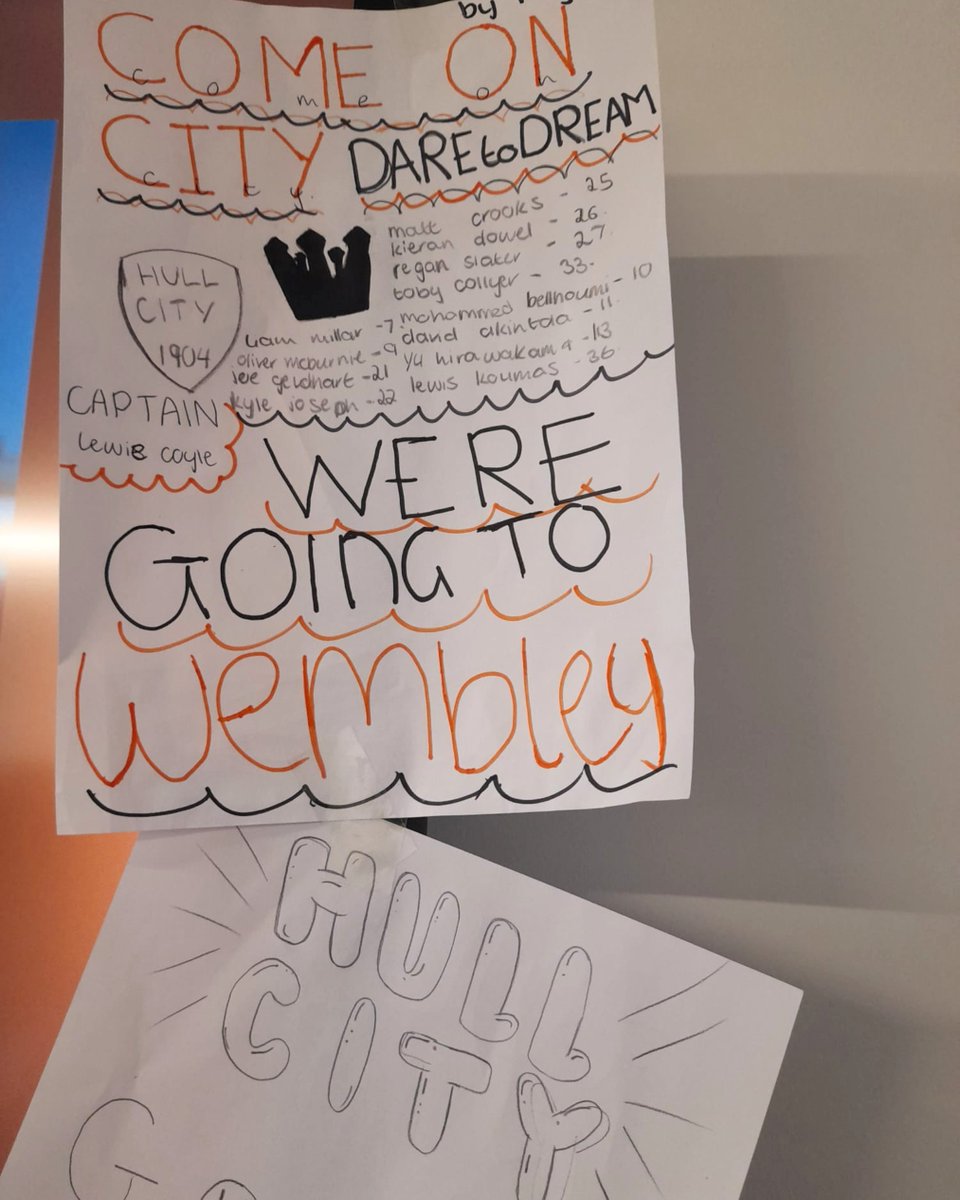 by
COME ON
come on
CITY DARE to DREAM
city
matt crooks - 25
kieran dowel - 26
regan slater - 27
toby collyer - 33
HULL
CITY
1904
liam millar - 7
oliver mcburnie - 9
kyle joseph - 22
mohammed bellhoumi - 10
david akintola - 11
yu hirawakama - 13
lewis koumas - 36
CAPTAIN
lewis coyle
WERE
GOING TO
wembley
HULL
CITY